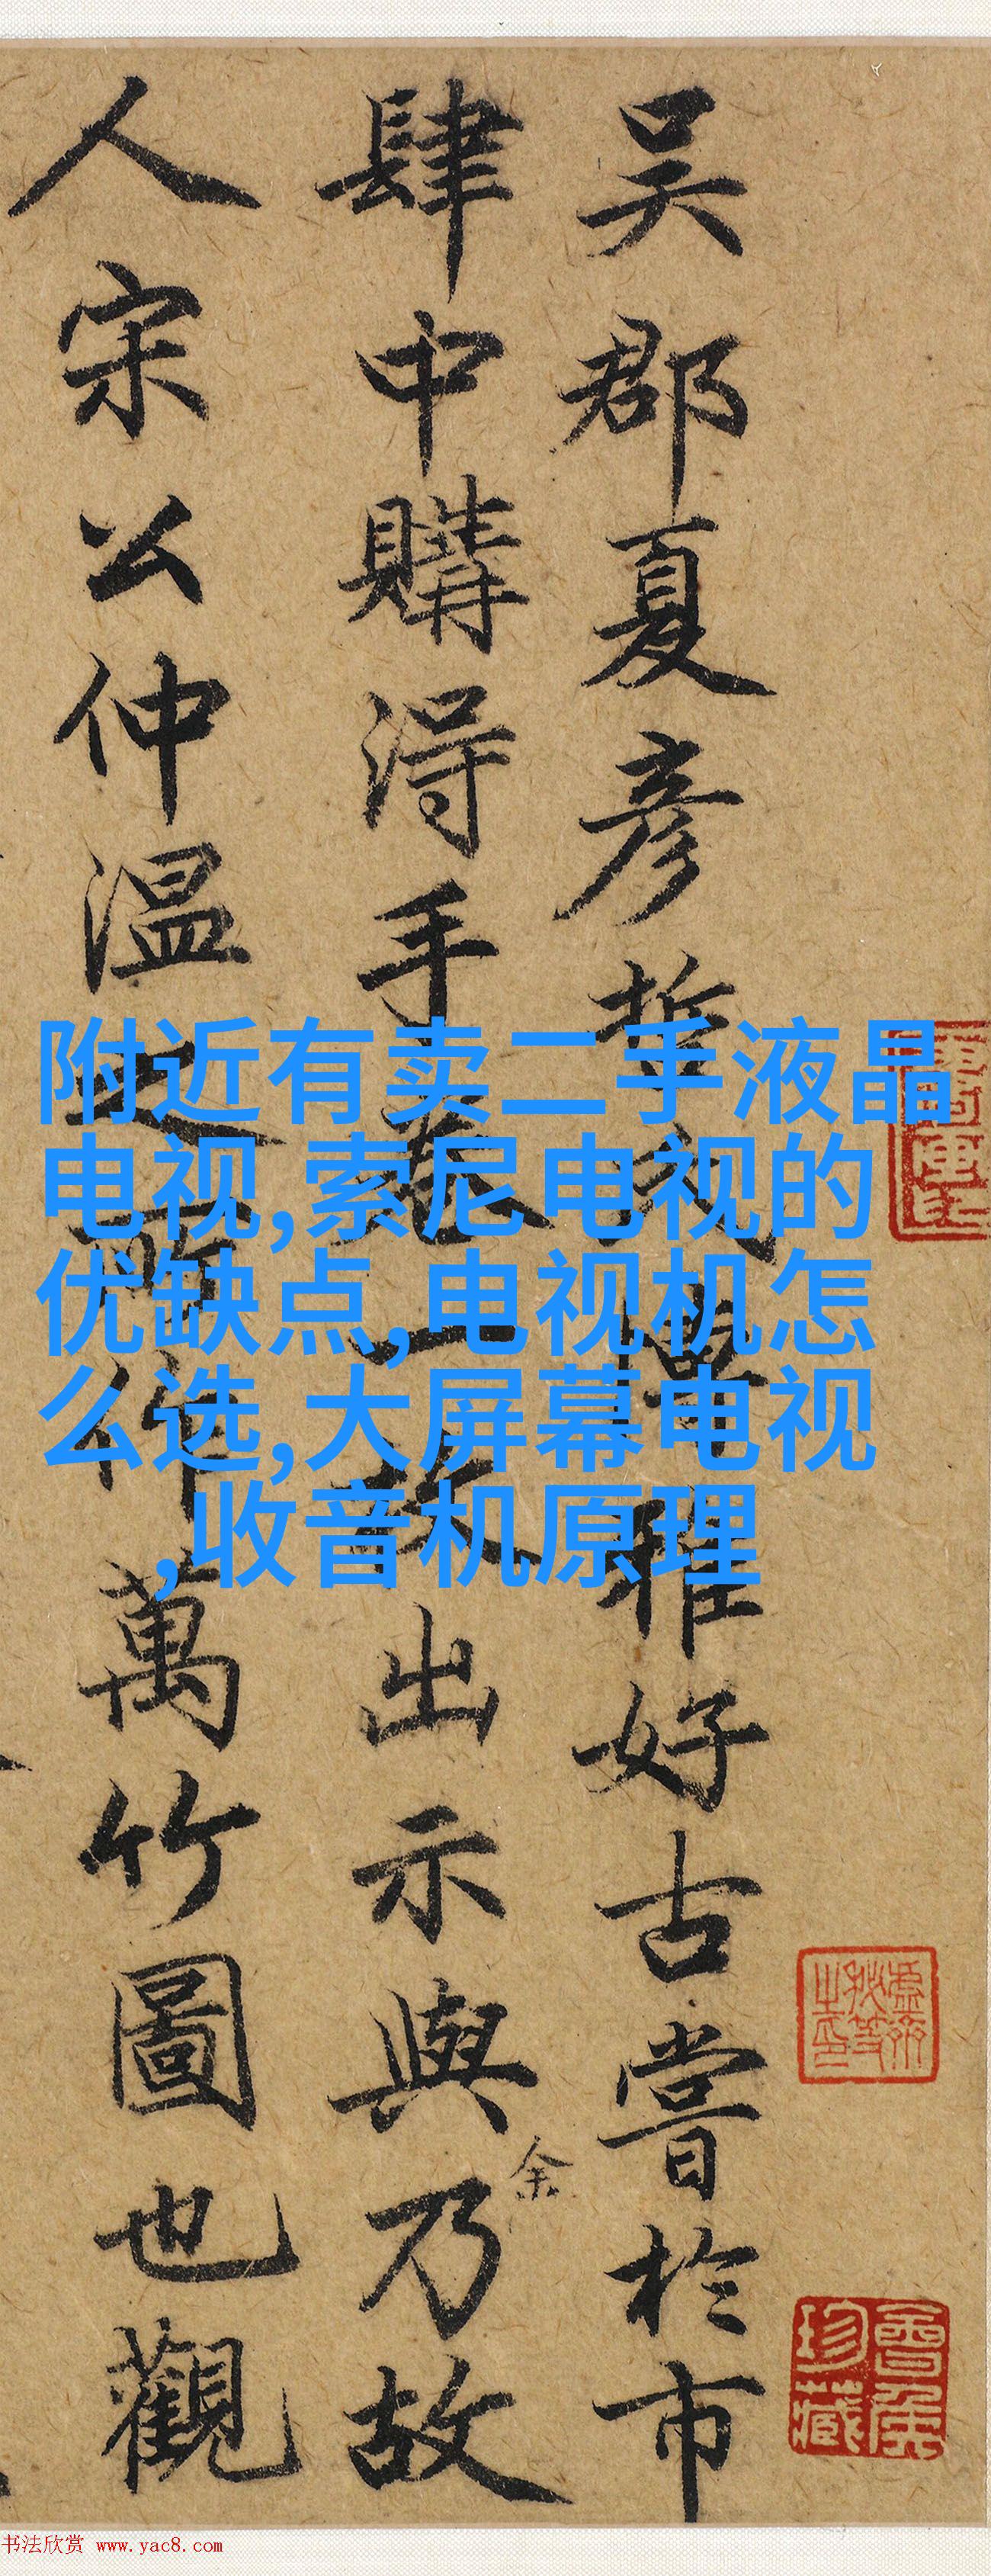 吴郡夏彦哲雅好古嘗於市
肆中購得手卷一出示與余乃故
人宋公仲温之所作萬竹圖也觀
附近有卖二手液晶
电视,索尼电视的
优缺点,电视机怎
么选,大屏幕电视
,收音机原理
珍藏
书法欣赏 www.yac8.com